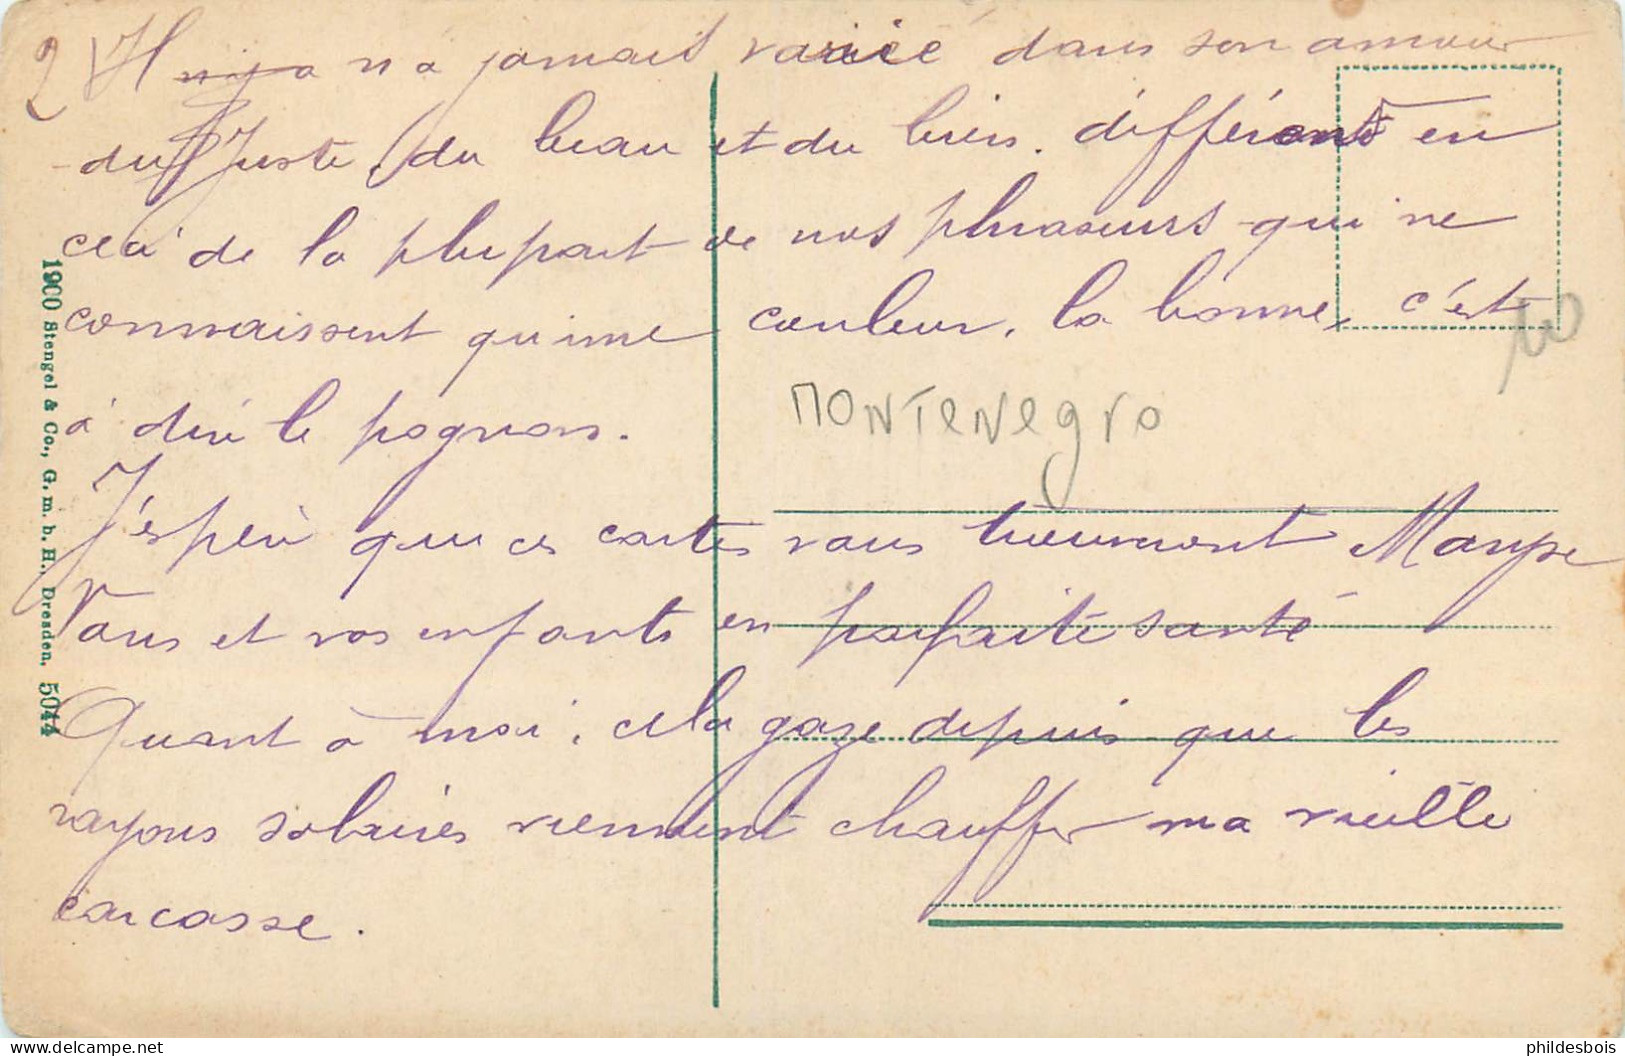 2) Il n'y a n'a jamais varié dans son amour
du Juste, du beau et du bien. différent en
cela de la plupart de nos phraseurs qui ne
connaissent qu'une couleur, la bonne, c'est
à dire le pognon.
MONTENEGRO
J'espère que ces cartes vous trouveront Maryse
Vous et vos enfants en parfaite santé
Quant à moi, cela gaze depuis que les
rayons solaires viennent chauffer ma vieille
carcasse.
1900 Stengel & Co., G. m. b. H., Dresden. 5044
phildesbois